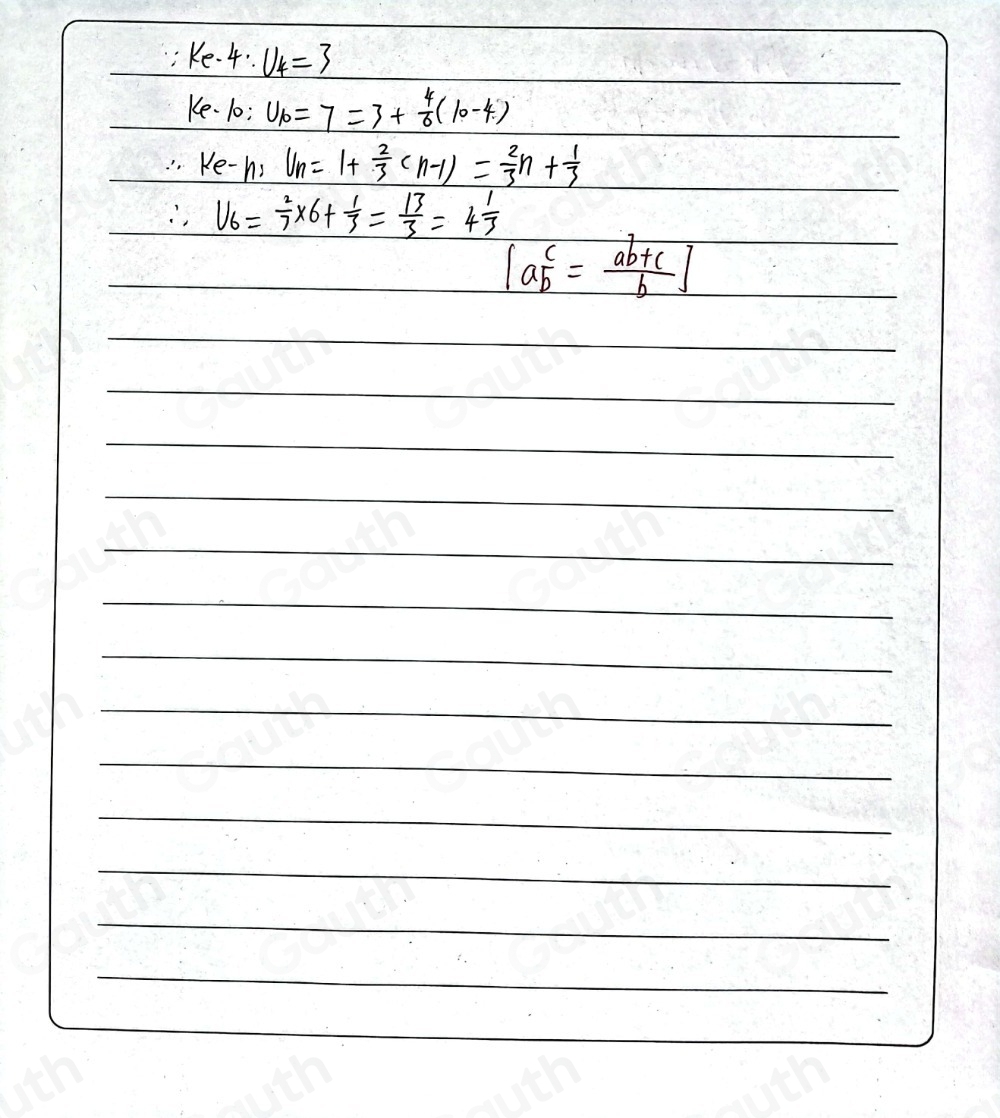 ∵ Ke-4: U4 = 3
Ke-10: U10 = 7 = 3 + 4/6(10-4)
∴ Ke-n: Un = 1 + 2/3 (n-1) = 2/3n + 1/3
∴ U6 = 2/3×6 + 1/3 = 13/3 = 4 1/3
[a c/b = ab+c/b]